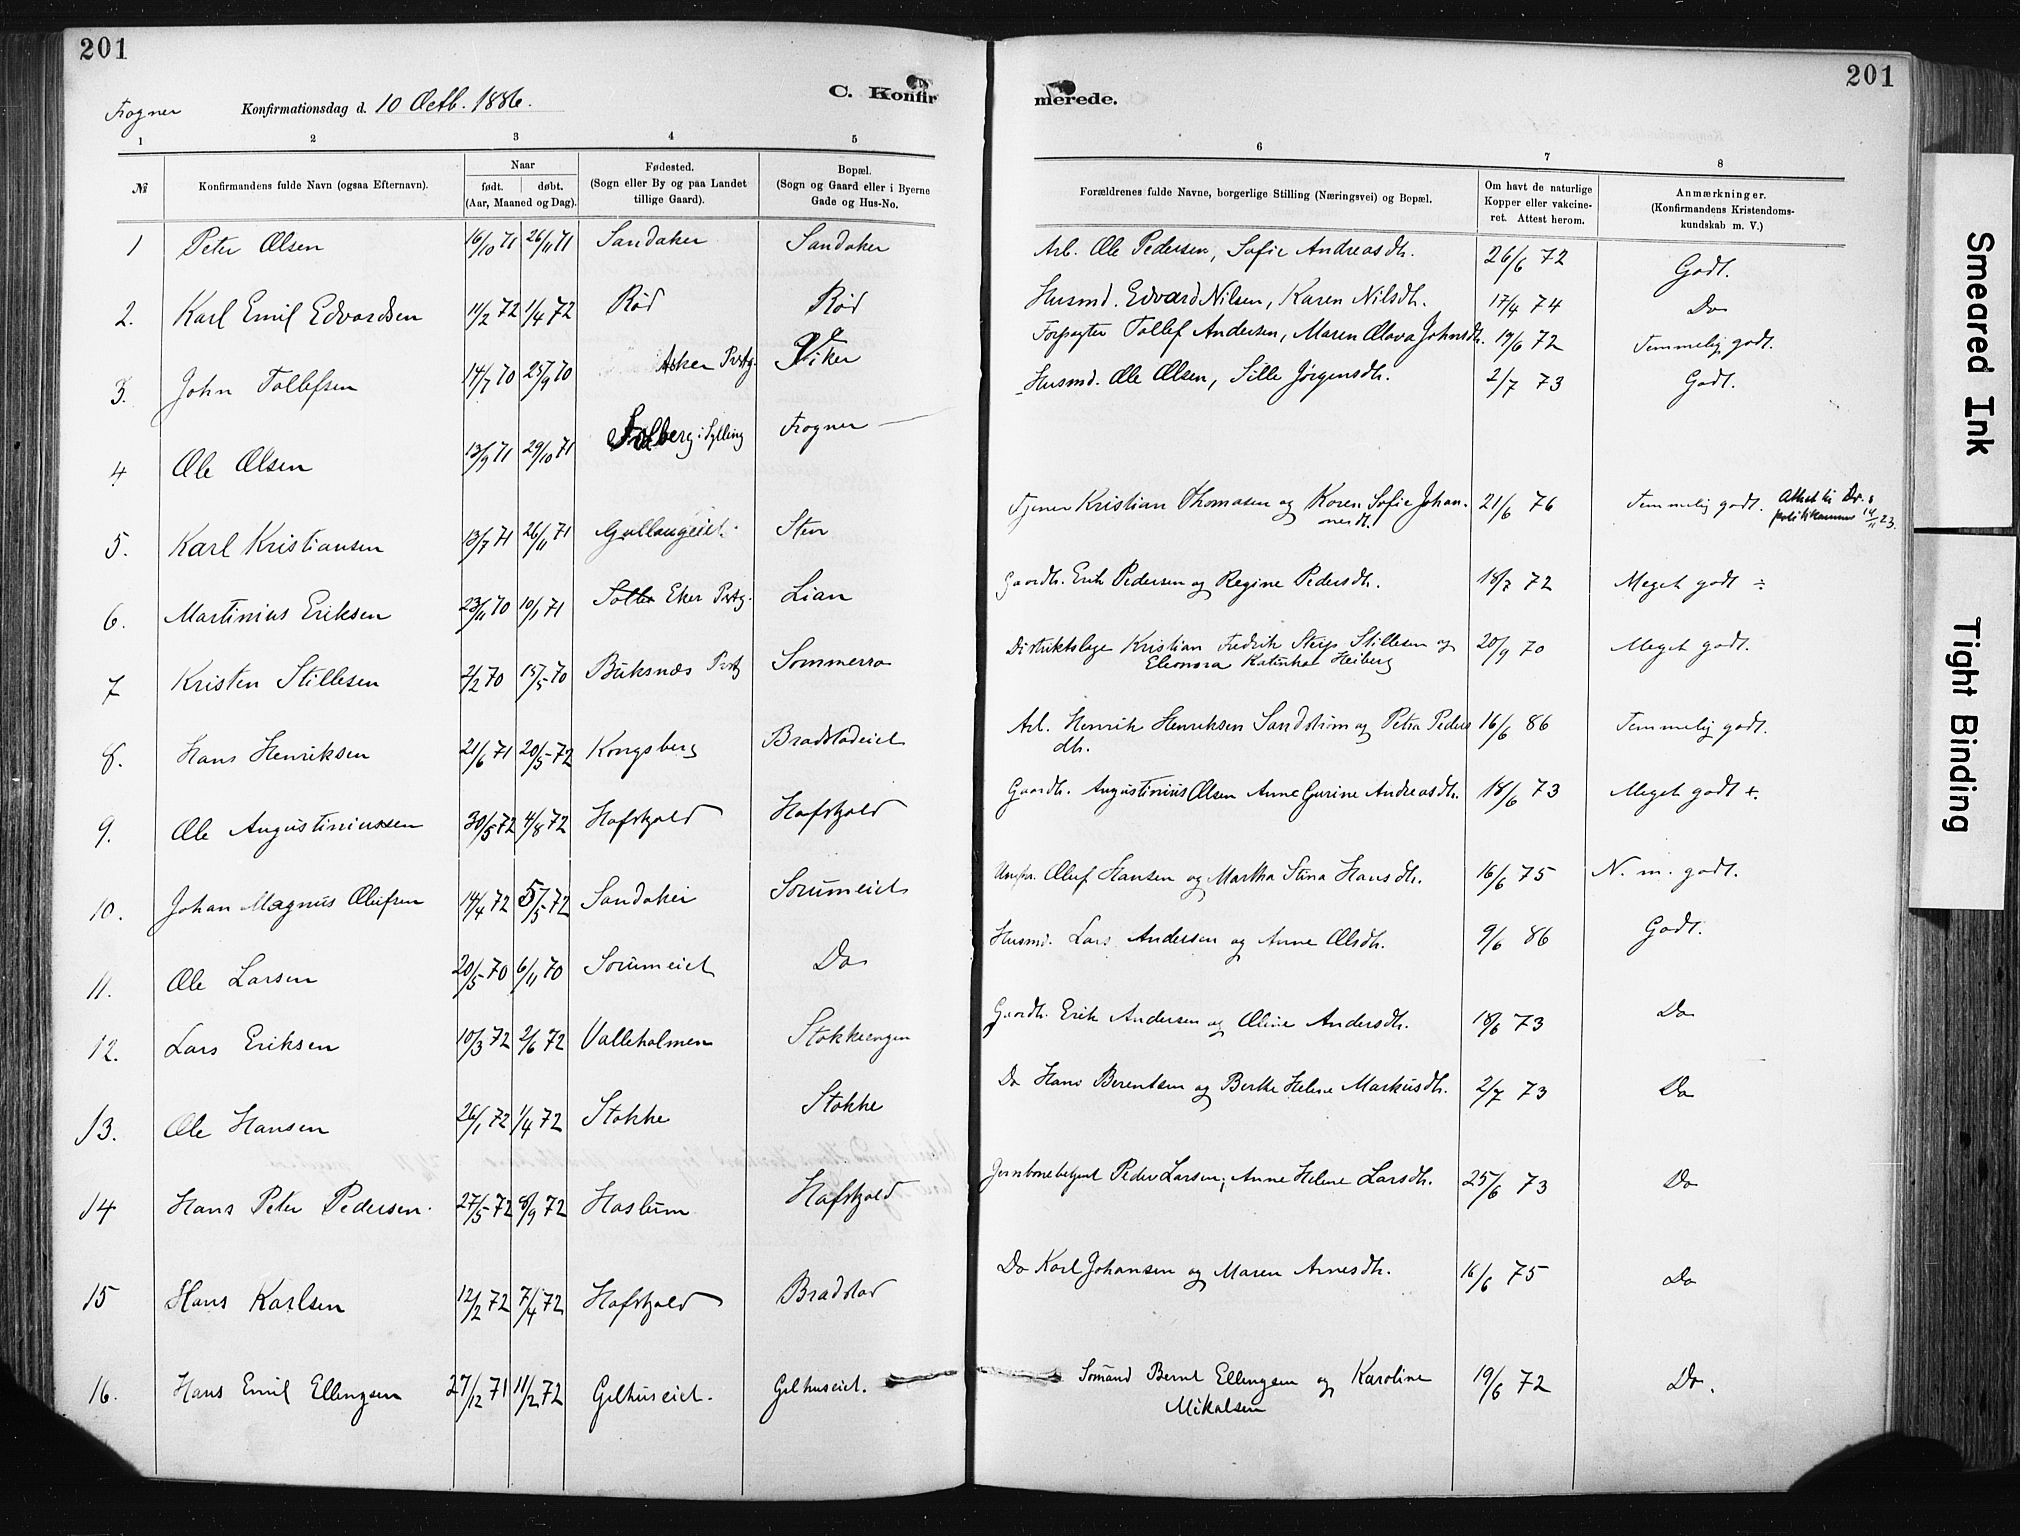 201
201
Frogner Konfirmationsdag d. 10 Octb. 1886.
C. Konfir
merede.
1 2 3 4 5 6 7 8
№
Konfirmandens fulde Navn (ogsaa Efternavn).
Naar
født. døbt.
(Aar, Maaned og Dag).
Fødested.
(Sogn eller By og paa Landet
tillige Gaard).
Bopæl.
(Sogn og Gaard eller i Byerne
Gade og Hus-No.
Forældrenes fulde Navne, borgerlige Stilling (Næringsvei) og Bopæl.
Om havt de naturlige
Kopper eller vakcine-
ret. Attest herom.
Anmærkninger.
(Konfirmandens Kristendoms-
kundskab m. V.)
1 Peter Olsen 16/10 71 26/11 71 Sandaker Sandaker Arb. Ole Pedersen, Sofie Andreasdtr. 26/6 72 Godt.
2. Karl Emil Edvardsen 11/2 72 1/4 72 Rød Rød Husmd. Edvard Nilsen, Karen Nilsdtr. 17/4 74 Do
3. John Tollefsen 14/7 70 25/9 70 Asker Prstg. Viker Forpagter Tollef Andersen, Maren Olava Johnsdtr. 19/6 72 Temmelig godt.
4. Ole Olsen 13/9 71 29/10 71 Solberg i Sylling Frogner Husmd. Ole Olsen, Sille Jørgensdtr. 2/7 73 Godt.
5. Karl Kristiansen 13/7 71 26/11 71 Gullaugeiet. Sten Tjener Kristian Thomasen og Karen Sofie Johan-
nesdt. 21/6 76 Temmelig godt. Attest til Dr.s
politikammer 14/11 23.
6. Martinius Eriksen 23/11 70 10/1 71 Eker Prstg. Lian Gaardbr. Erik Pedersen og Regine Pedersdtr. 18/7 72 Meget godt ÷
7 Kristen Stillesen 2/2 70 15/5 70 Buksnæs Prstg Sommerro Distriktslæge Kristian Fredrik Stillesen og
Eleonora Heiberg 20/9 70 Meget godt.
8. Hans Henriksen 21/6 71 20/5 72 Kongsberg Bradstadeiet Arb. Henrik Henriksen Sandstrøm og Petra Peders
dtr. 16/6 86 Temmelig godt.
9. Ole Augustinussen 30/5 72 4/8 72 Hafskjold Hafskjold Gaardbr. Augustinius Olsen Anne Gurine Andreasdtr. 18/6 73 Meget godt +.
10. Johan Magnus Olufsen 14/4 72 5/5 72 Sandaker Sørumeiet Oluf Hansen og Martha Stina Hansdtr. 16/6 75 N. m. godt.
11. Ole Larsen 20/5 70 6/11 70 Sørumeiet Do Husmd. Lars Andersen og Anne Olsdtr. 9/6 86 Godt.
12. Lars Eriksen 10/3 72 2/6 72 Valleholmen Stokkeengen Gaardbr. Erik Andersen og Oline Andersdtr. 18/6 73 Do
13. Ole Hansen 26/1 72 1/4 72 Stokke Stokke Do Hans Berentsen og Berthe Helene Markusdtr. 2/7 73 Do
14 Hans Peter Pedersen. 27/5 72 8/9 72 Haslum Hafskjold Jernbanebetjent Peder Larsen, Anne Helene Larsdtr. 25/6 73 Do
15 Hans Karlsen 12/2 72 7/4 72 Hafskjold Bradstad Do Karl Johansen og Maren Arnesdtr. 16/6 75 Do
16. Hans Emil Ellingsen 27/12 71 11/2 72 Gilhuseiet. Gilhuseiet. Sømand Bernt Ellingsen og Karoline
Mikalsen 19/6 72 Do.
Smeared Ink
Tight Binding